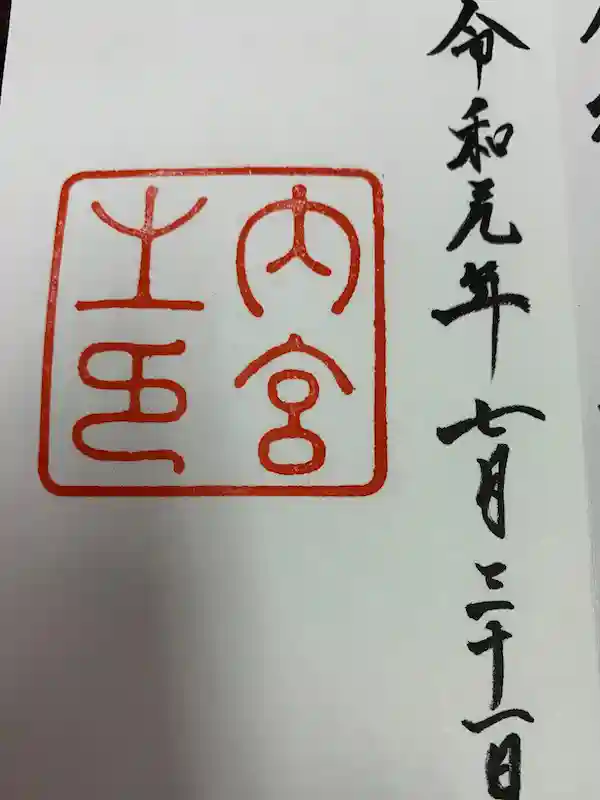 令和元年七月三十一日
内宮
之印